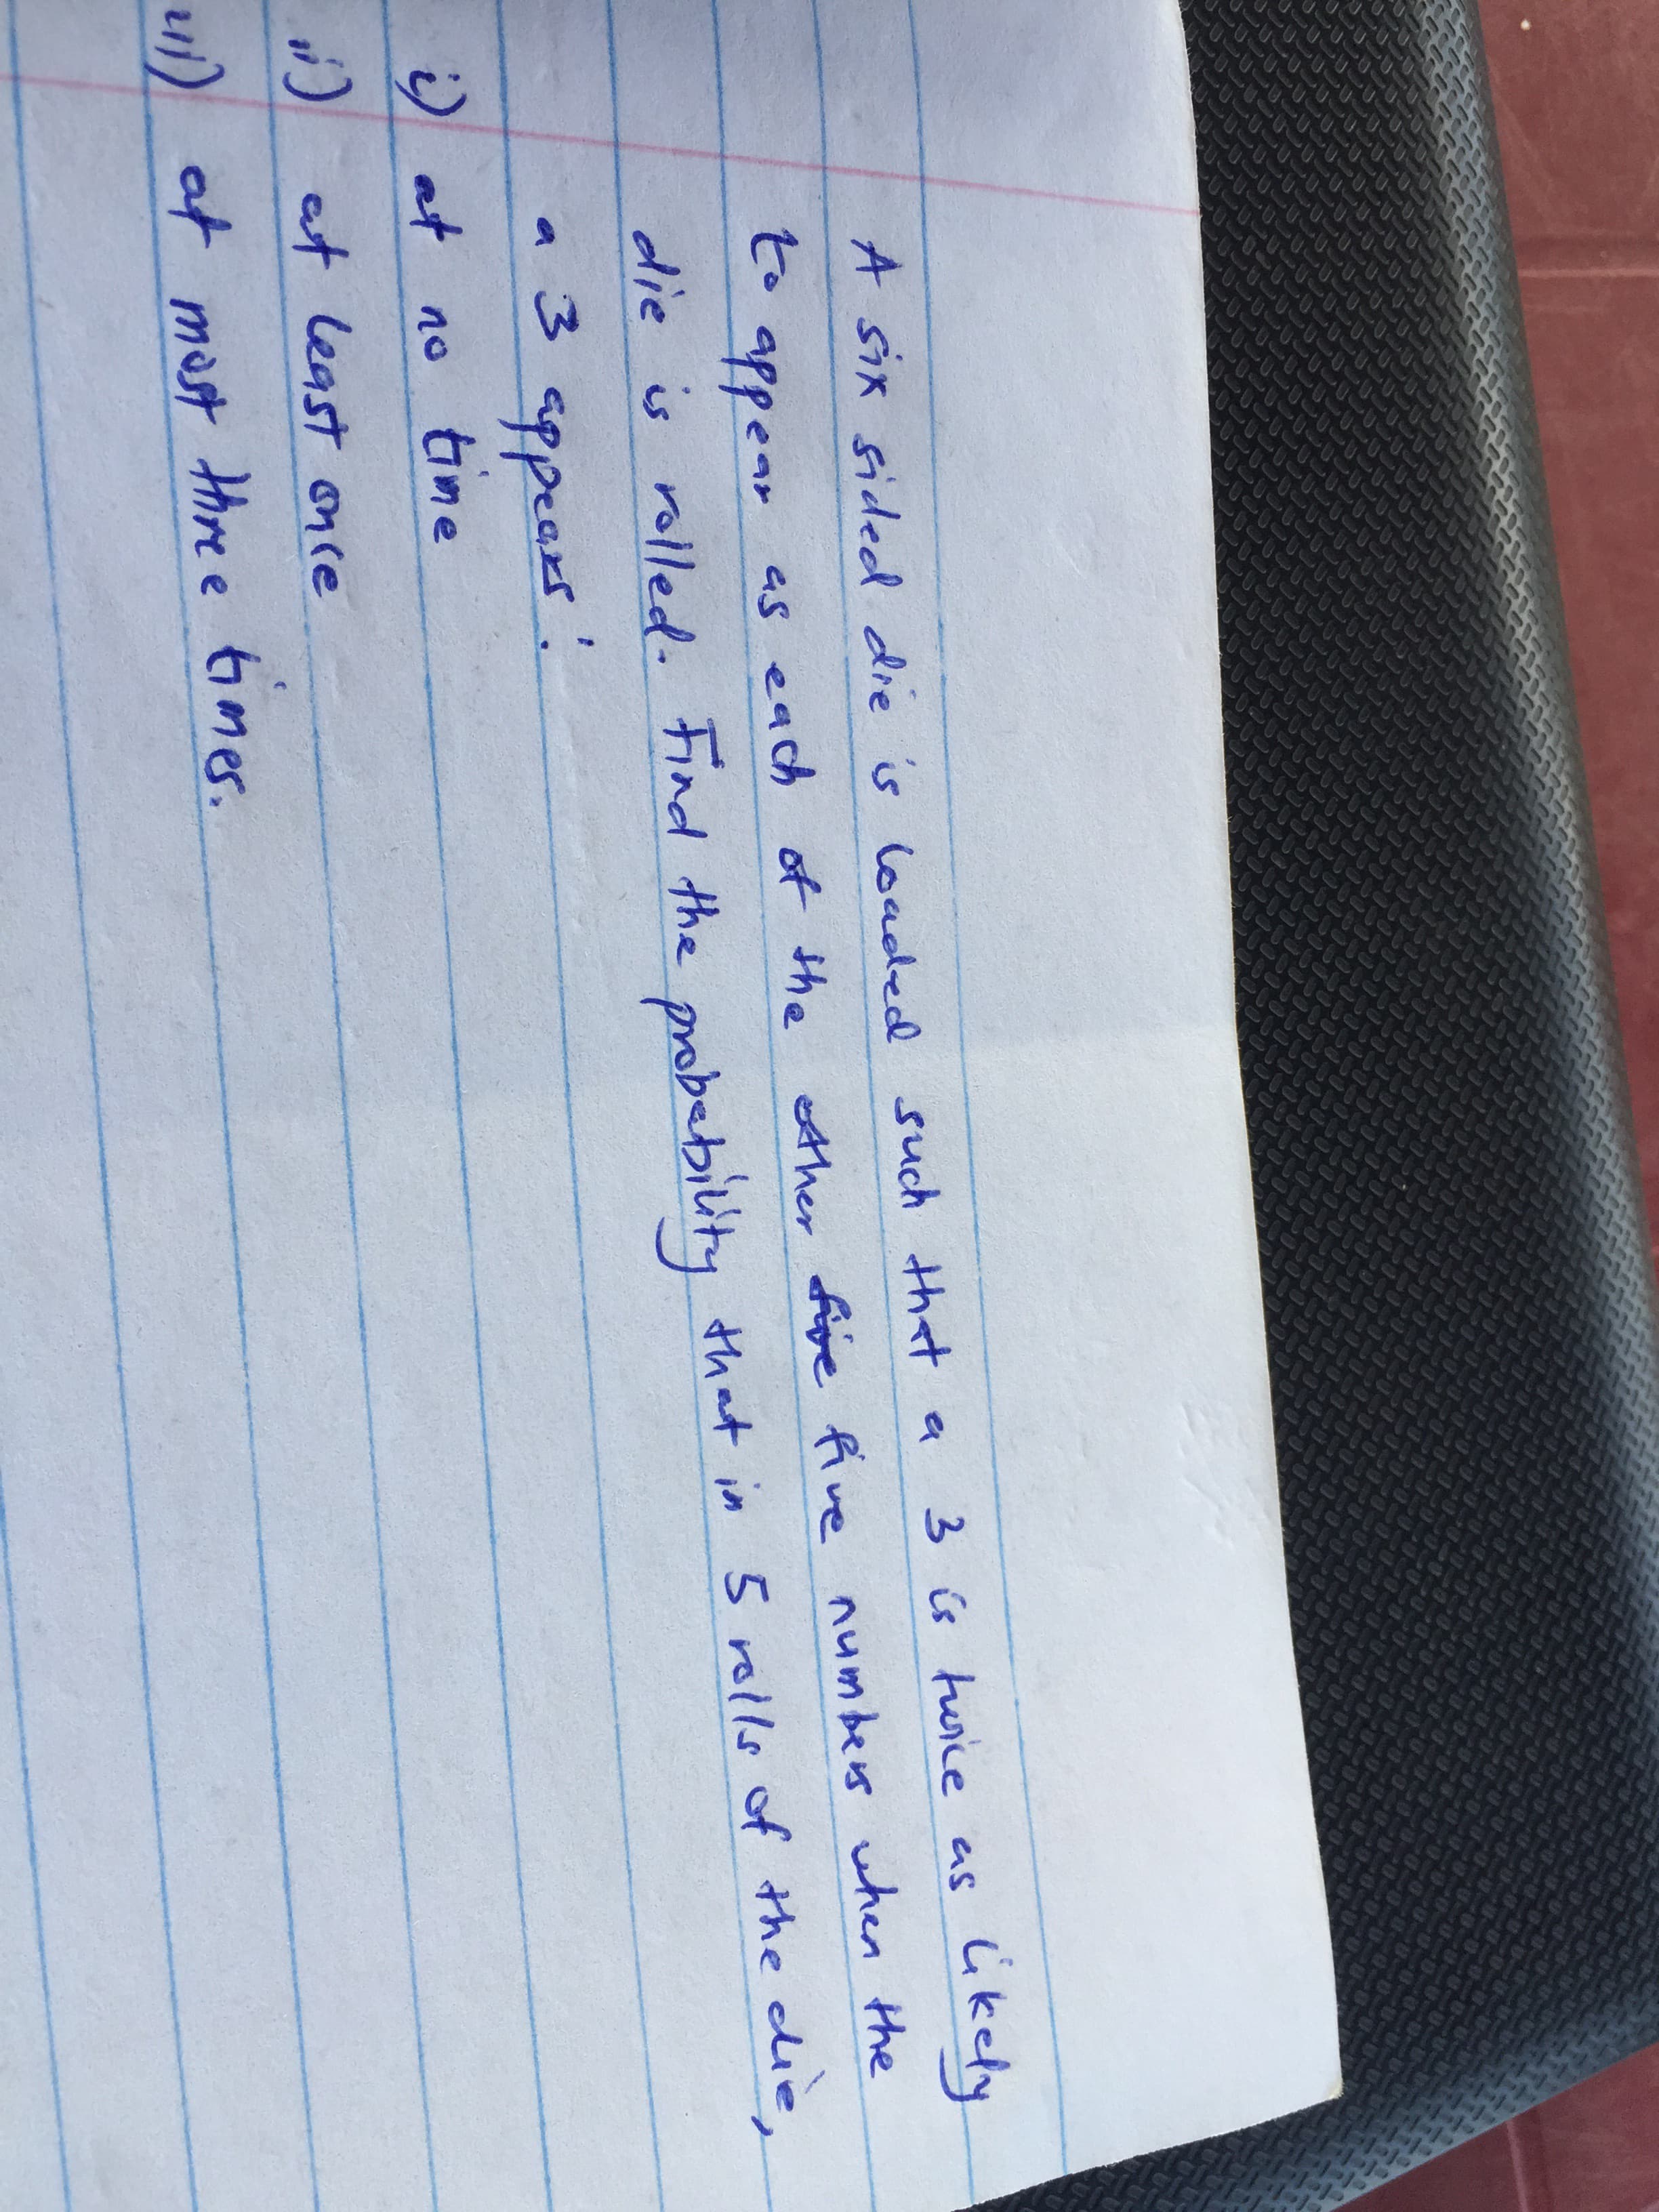 A six sided die is loaded such that a 3 is twice as likely
to appear as each of the other five five numbers when the
die is rolled. Find the probability that in 5 rolls of the die,
a 3 appears:
i) at no time
ii) at least once
iii) at most three times.